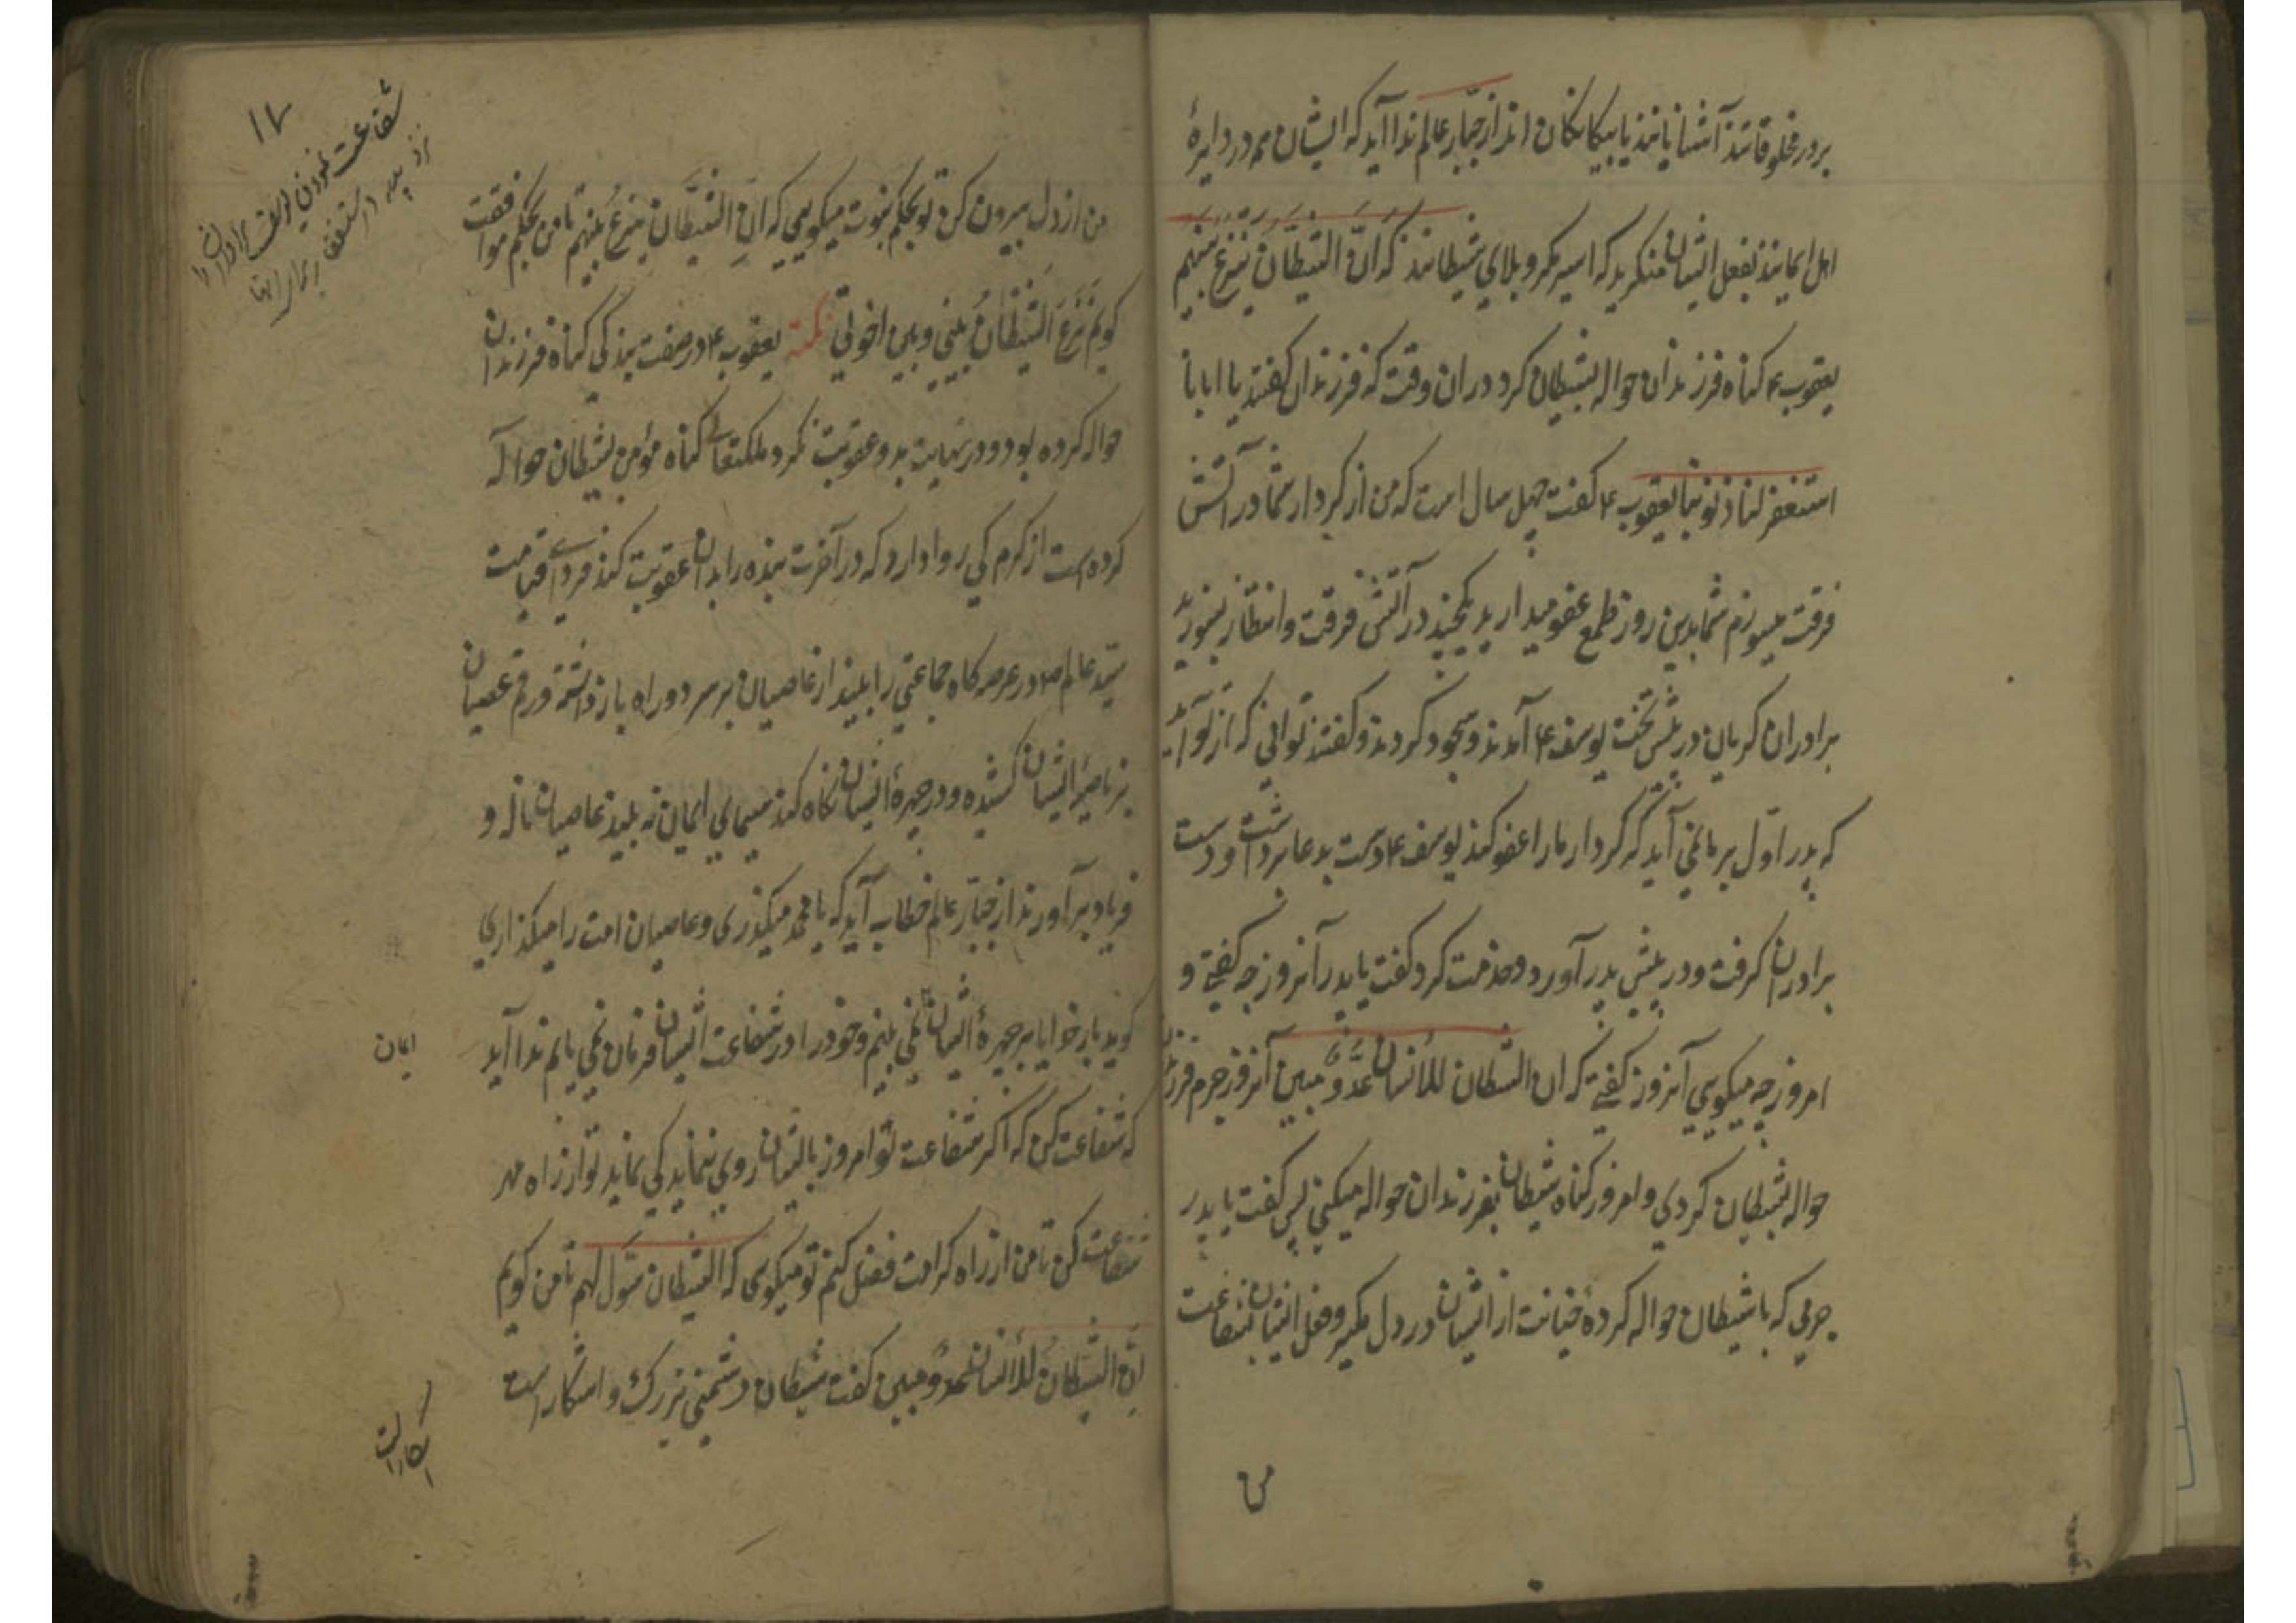 بر در مخلوقاتند آشنایانند یا بیکانکان اند از جبار عالم ندا آید که ایشان هم در دایرهٔ
اهل ایمانند بفعل ایشان منکرید که اسیر مکر و بلای شیطانند که انّ الشیطان ینزغ بینهم
یعقوب ع کناه فرزندان حواله بشیطان کرد در ان وقت که فرزندان کفتند یا ابانا
استغفر لنا ذنوبنا یعقوب ع کفت چهل سال است که من از کردار شما در آتش
فرقت میسوزم شما بدین روز طمع عفو میدارید در آتش فرقت و انتظار بسوزید
برادران کریان در پیش تخت یوسف ع آمدند و سجود کردند و کفتند توانی که از تو آید
که پدر اوّل بر ما نمی آید که کردار ما را عفو کند یوسف ع دست بدعا برداشت و دست
برادران کرفت و در پیش پدر آورد و خدمت کرد کفت یا پدر آنروز چه کفتی و
امروز چه میکویی آنروز کفتی که ان الشیطان للأنسان عدُوٌّ مبین آنروز جرم فرزندان
حواله بشیطان کردی و امروز کناه شیطان بفرزندان حواله میکنی پس کفت یا پدر
جرمی که با شیطان حواله کردهٔ خیانت از ایشان در دل مکیر و فعل ایشان بشفاعت
من
۱۷
شفاعت نمودن یوسف برادران را
نزد پدر
من از دل بیرون کن تو بحکم نبوت میکویی که انّ الشیطان ینزغ بینهم تا من بحکم موافقت
کویم نزغ الشیطان بینی و بین اخوتی نکته یعقوب ع در صفت بندکی کناه فرزندان
حواله کرده بود و در نهایت بدو عقوبت نکرد ملکتعالی کناه مؤمن بشیطان حواله
کرده است از کرم کی روا دارد که در آخرت بنده را بدان عقوبت کند فردای قیامت
سیّد عالم ص در عرصه کاه جماعتی را بیند از عاصیان بر سر دو راه بازداشته و رقم عصیان
بر ناصیهٔ ایشان کشیده و در چهرهٔ ایشان نکاه کند سیمای ایمان نه بیند عاصیان ناله و
فریاد برآورند از جبّار عالم خطاب آید که یا محمد میکذری و عاصیان امت را میکذاری
کوید بار خدایا بر چهرهٔ ایشان نمی بینم و خود را در شفاعت ایشان فرمان نمی یابم ندا آید
ایمان
که شفاعت کن که اکر شفاعت تو امروز بایشان روی ننماید کی نماید تو از راه مهر
شفاعت کن تا من از راه کرامت فضل کنم تو میکوی که الشیطان سوّل لهم تا من کویم
انّ الشیطان للأنسان عدوٌ مبین کفت شیطان دشمنی بزرک و اشکار است
اشکار است